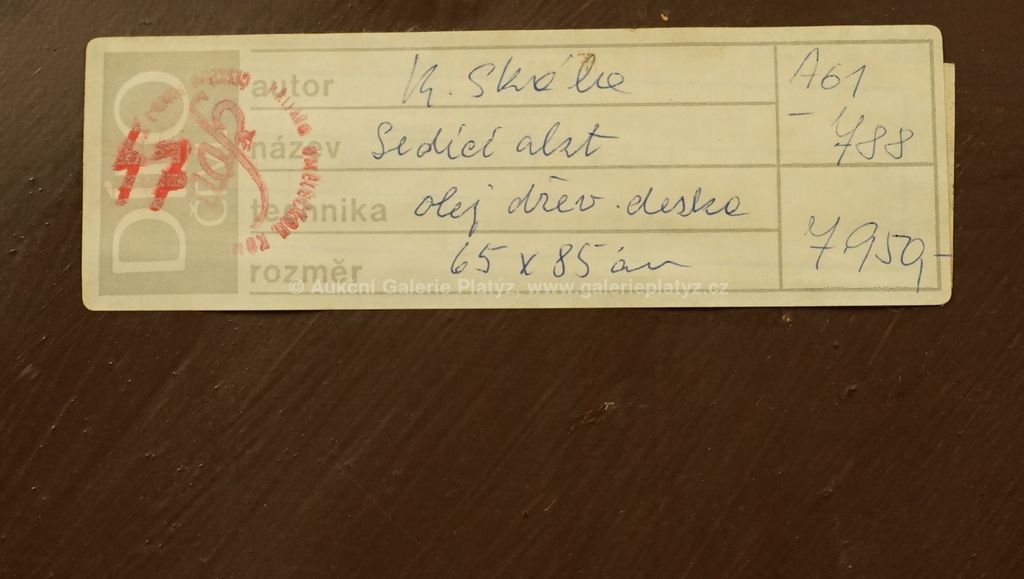 DÍLO
17
autor K. Skála A61
název Sedící akt - 788
technika olej dřev. deska
rozměr 65 x 85 cm 7950,-
© Aukcní Galerie Platýz, www.galerieplatyz.cz